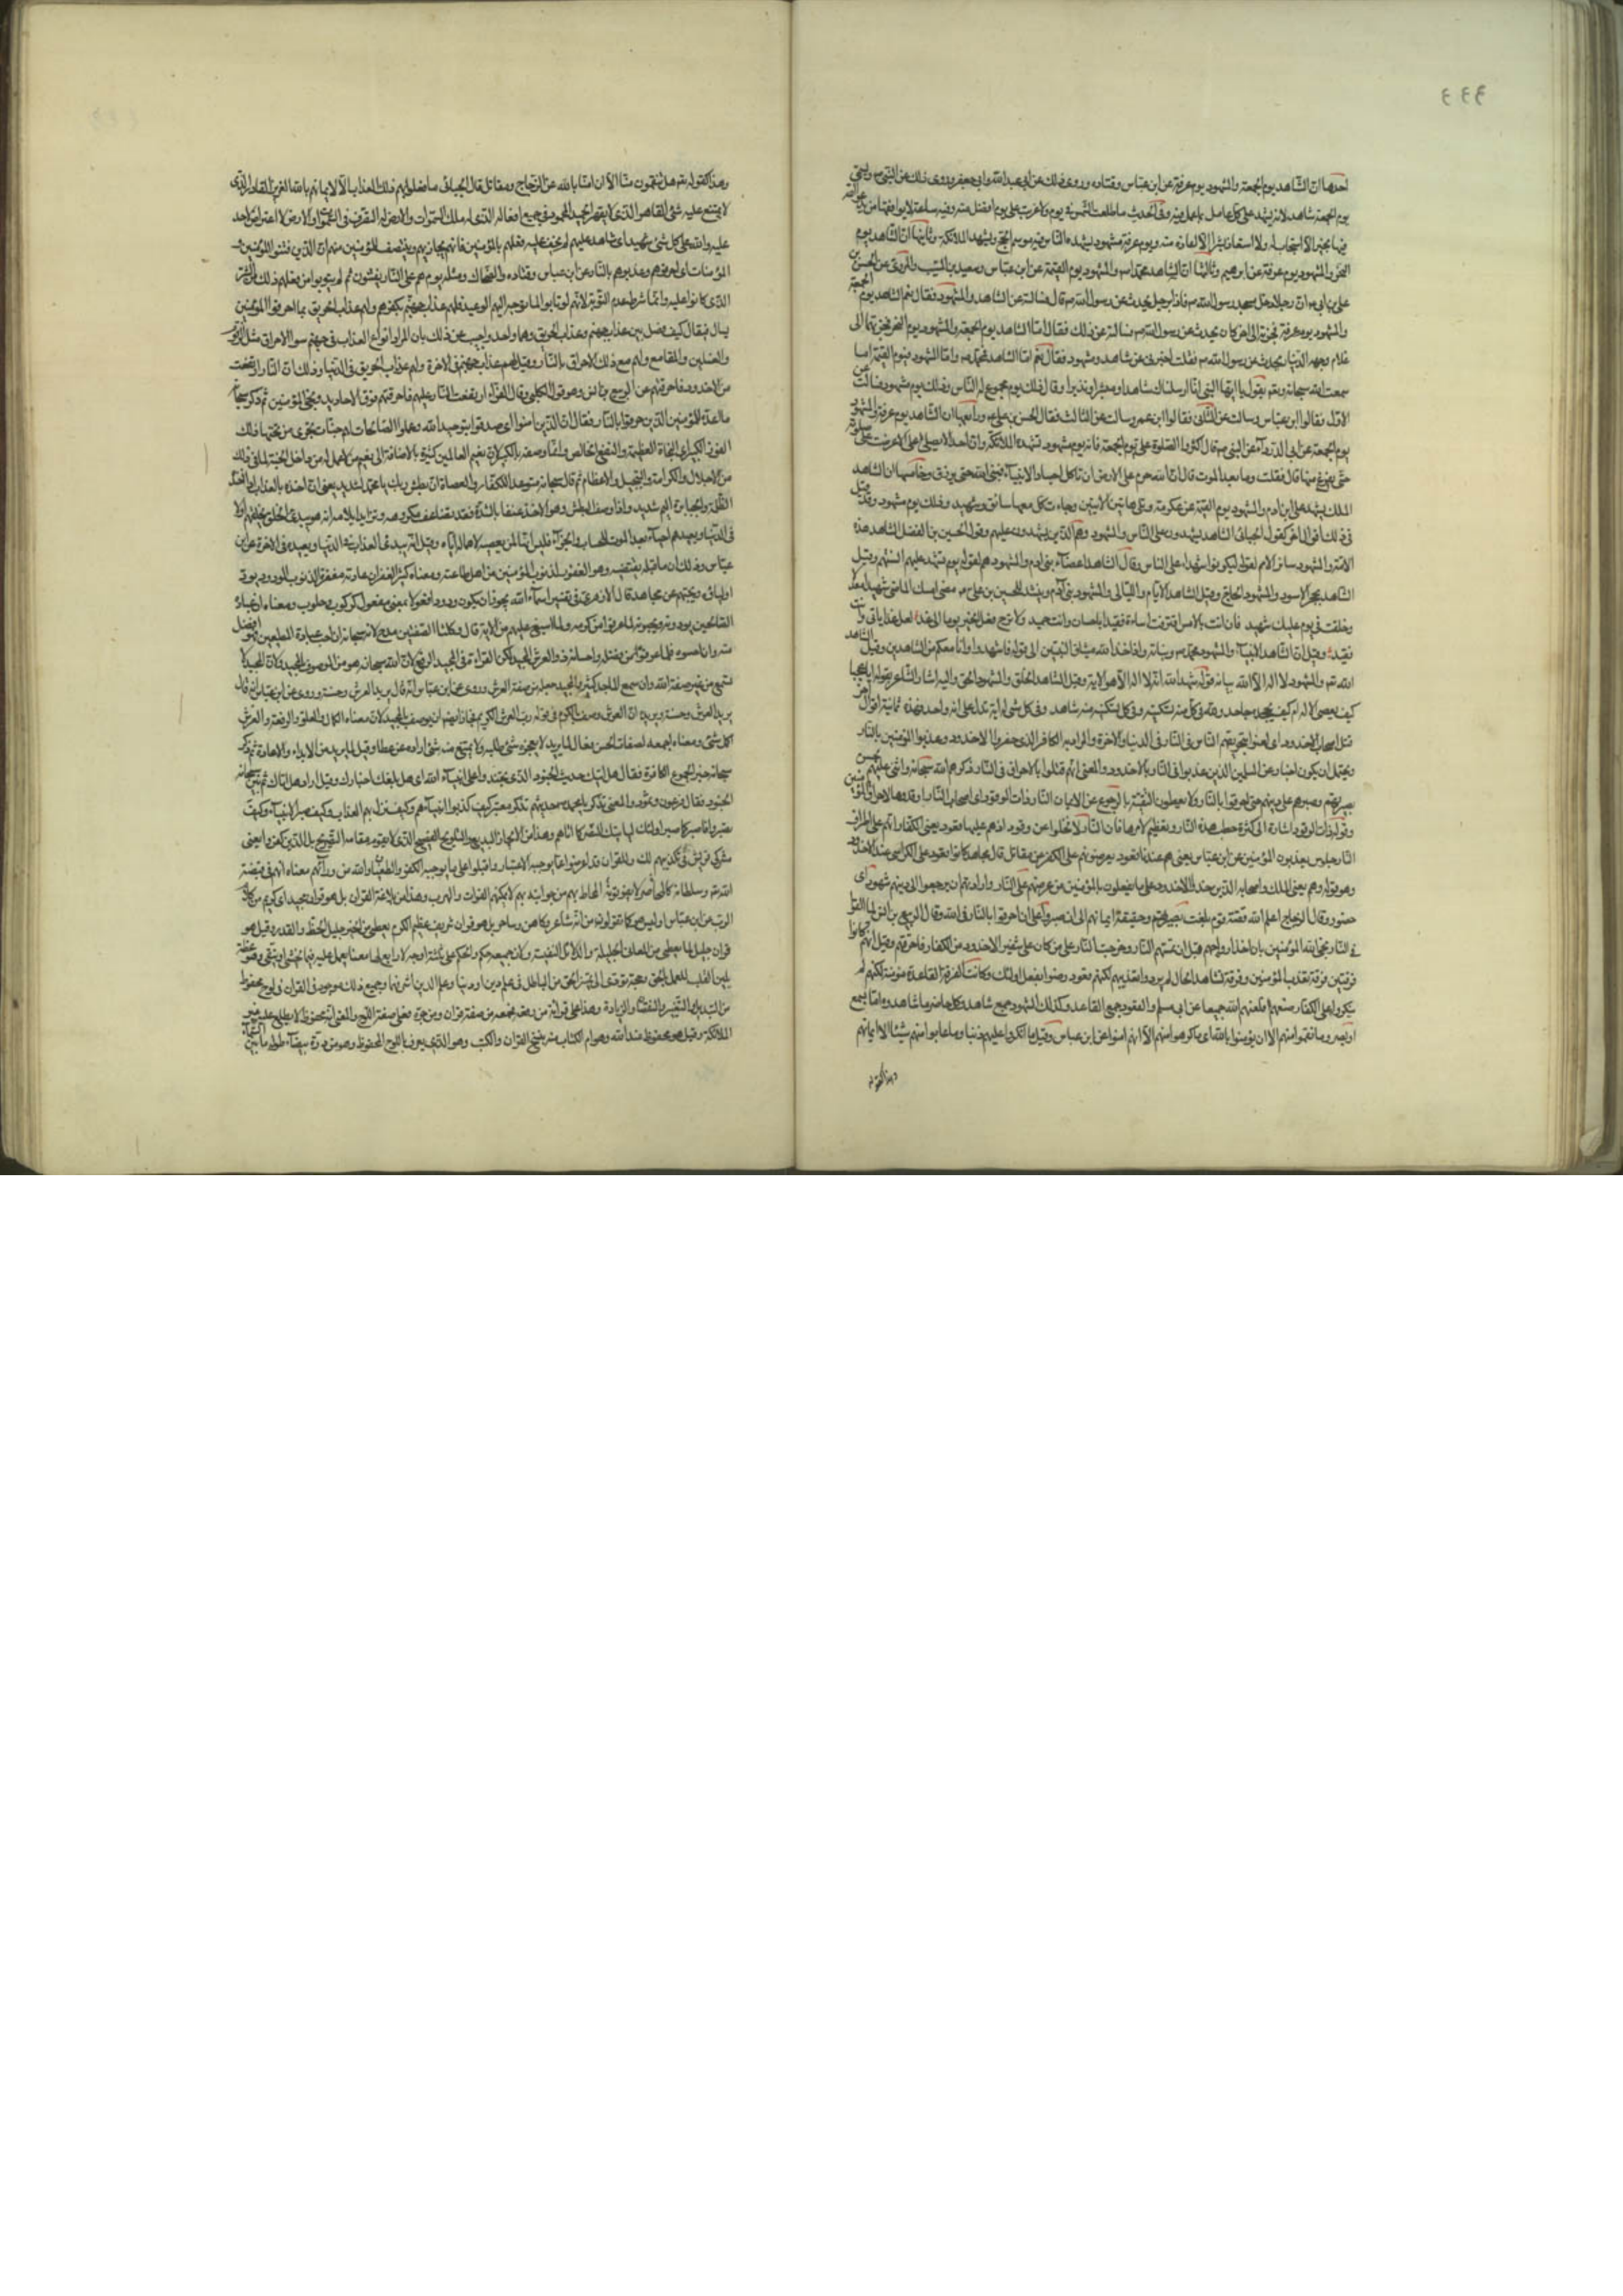 ٤٤٤
احدها ان الشاهد يوم الجمعة والمشهود يوم عرفة عن ابن عباس وقتادة وروى ذلك عن ابى عبد الله وابى جعفر وروى ذلك عن النبى ص وسمى
يوم الجمعة شاهدا لانه يشهد على كل عامل بما عمل فيه وفى الحديث ما طلعت الشمس على يوم ولا غربت على يوم افضل منه وفيه ساعة لا يوافقها من يدعو الله
فيها بخير الا استجاب له ولا استعاذ من شر الا اعاذه منه ويوم عرفة مشهود يشهده الناس فيه موسم الحج ويشهده الملائكة وثانيها ان الشاهد يوم
النحر والمشهود يوم عرفة عن ابرهيم وثالثها ان الشاهد محمد ص والمشهود يوم القيمة عن ابن عباس وسعيد بن المسيب والمروى عن الحسن بن
على ان رجلا دخل مسجد رسول الله ص فاذا رجل يحدث عن رسول الله ص قال فسالته عن الشاهد والمشهود فقال نعم الشاهد يوم الجمعة
والمشهود يوم عرفة فجزته الى اخر كان يحدث عن رسول الله ص فسالته عن ذلك فقال اما الشاهد يوم الجمعة والمشهود يوم النحر فجزتهما الى
غلام وجهه الدينار يحدث عن رسول الله ص فقلت اخبرنى عن شاهد ومشهود فقال نعم اما الشاهد فمحمد ص واما المشهود فيوم القيمة اما
سمعت الله سبحانه وتعالى يقول يا ايها النبى انا ارسلناك شاهدا ومبشرا ونذيرا وقال ذلك يوم مجموع له الناس وذلك يوم مشهود فسالت عن
الاول فقالوا ابن عباس وسالت عن الثانى فقالوا ابن عمر وسالت عن الثالث فقال الحسن بن على ورابعها ان الشاهد يوم عرفة والمشهود
يوم الجمعة عن ابى الدرداء عن النبى ص قال اكثروا الصلوة على يوم الجمعة فانه يوم مشهود تشهده الملائكة وان احدا لا يصلى على الا عرضت على صلوته
حتى يفرغ منها قال فقلت وما بعد الموت قال ان الله حرم على الارض ان تاكل اجساد الانبياء فنبى الله حى يرزق وخامسها ان الشاهد
الملك يشهد على ابن ادم والمشهود يوم القيمة عن عكرمة وتلى هاتين الايتين وجاءت كل نفس معها سائق وشهيد وذلك يوم مشهود وقد قيل
فى ذلك اقوال اخر كقول الجبائى الشاهد الذين يشهدون على الناس والمشهود هم الذين يشهدون عليهم وقول الحسين بن الفضل الشاهد هذه
الامة والمشهود سائر الامم لقوله لتكونوا شهداء على الناس وقال الشاهد اعضاء بنى ادم والمشهود هم لقوله يوم تشهد عليهم السنتهم وقيل
الشاهد الحجر الاسود والمشهود الحاج وقيل الشاهد الايام والليالى والمشهود بنى ادم وينشد للحسين بن على مضى امسك الماضى شهيدا معدلا
وخلفت فى يوم عليك شهيد فان انت بالامس اقترفت اساءة فقيد باحسان وانت حميد ولا ترج فعل الخير يوما الى غد لعل غدا ياتى وانت
فقيد وقيل ان الشاهد الانبياء والمشهود محمد ص وبيانه واذ اخذ الله ميثاق النبيين الى قوله فاشهدوا وانا معكم من الشاهدين وقيل الشاهد
الله تعالى والمشهود لا اله الا الله بيانه قوله شهد الله انه لا اله الا هو الاية وقيل الشاهد الخلق والمشهود الحق واليه اشار الشاعر بقوله ايا عجبا
كيف يعصى الاله ام كيف يجحده جاحد ولله فى كل تحريكة وفى كل تسكينة شاهد وفى كل شىء له اية تدل على انه واحد فهذه ثمانية اقوال اخر
قتل اصحاب الاخدود اى لعنوا بتحريقهم الناس فى النار فى الدنيا والاخرة والمراد به الكافر الذى حفر والاخدود وعذبوا المؤمنين بالنار
ويحتمل ان يكون اخبارا عن المسلمين الذين عذبوا فى النار بالاخدود والمعنى انهم قتلوا بالاحراق فى النار ذكرهم الله سبحانه واثنى عليهم بحسن
بصيرتهم وصبرهم على دينهم حتى احرقوا بالنار ولا يعطون التقية بالرجوع عن الايمان النار ذات الوقود اى اصحاب النار اوقدوها لاحراق المؤمنين
وقوله ذات الوقود اشارة الى كثرة حطب هذه النار وتعظيم لامرها فان النار لا تخلوا عن وقود اذ هم عليها قعود يعنى الكفار اذ هم على اطراف
النار جلوس يعذبون المؤمنين عن ابن عباس يعنى هم عندها قعود يعرضونهم على الكفر عن مقاتل قال مجاهد كانوا قعود على الكراسى عند الاخدود
وهو قوله وهم يعنى الملك واصحابه الذين خدوا الاخدود على ما يفعلون بالمؤمنين من عرضهم على النار وارادتهم ان يرجعوا الى دينهم شهود اى
حضور وقال الزجاج اعلم الله قصة قوم بلغت بصيرتهم وحقيقة ايمانهم الى ان صبروا على ان احرقوا بالنار فى الله وقال الربيع بن انس لما القوا
فى النار نجى الله المؤمنين بان اخذ ارواحهم قبل ان تمسهم النار وخرجت النار على من كان على شفير الاخدود من الكفار فاحرقتهم وقيل انهم كانوا
فرقتين فرقة تعذب المؤمنين وفرقة تشاهد الحال لم يرد وانعذيبهم لكنهم قعود رضوا بفعل اولئك وكانت الفرقة القاعدة مؤمنة لكنهم لم
ينكروا على الكفار صنيعهم فلعنهم الله جميعا عن ابى مسلم والقعود جمع القاعد وكذلك الشهود جمع شاهد وكل حاضر ما شاهدوه اما بسمع
او بصر وما نقموا منهم الا ان يؤمنوا بالله اى ما كرهوا منهم الا انهم امنوا عن ابن عباس وقيل ما انكروا عليهم دينا وما عابوا منهم شيئا الا ايمانهم
وهذا كقوله
وهذا كقوله تعالى هل تنقمون منا الا ان امنا بالله عن الزجاج ومقاتل قال الجبائى ما فعلوا بهم ذلك العذاب الا لايمانهم بالله العزيز القادر الذى
لا يمتنع عليه شىء القاهر الذى لا يقهر الحميد المحمود فى جميع افعاله الذى له ملك السموات والارض له التصرف فى السموات والارض لا اعتراض لاحد
عليه والله على كل شىء شهيد اى شاهد عليهم لم يخف عليه فعلهم بالمؤمنين فانه يجازيهم وينتصف للمؤمنين منهم ان الذين فتنوا المؤمنين و
المؤمنات اى احرقوهم وعذبوهم بالنار عن ابن عباس وقتادة والضحاك ومثله يوم هم على النار يفتنون ثم لم يتوبوا من فعلهم ذلك ومن الشرك
الذى كانوا عليه وانما شرط عدم التوبة لانهم لو تابوا لما توجه اليهم الوعيد فلهم عذاب جهنم بكفرهم ولهم عذاب الحريق بما احرقوا المؤمنين
يسال فيقال كيف فصل بين عذاب جهنم وعذاب الحريق وهما واحد واجيب عن ذلك بان المراد انواع العذاب فى جهنم سوى الاحراق مثل الزقوم
والغسلين والمقامع ولهم مع ذلك الاحراق بالنار وقيل لهم عذاب جهنم فى الاخرة ولهم عذاب الحريق فى الدنيا وذلك ان النار ارتفعت
من الاخدود فاحرقتهم عن الربيع بن انس وهو قول الكلبى وقال الفراء ارتفعت النار عليهم فاحرقتهم فوق الاخاديد ونجى المؤمنين ثم ذكر سبحانه
ما اعده للمؤمنين الذين احرقوا بالنار فقال ان الذين امنوا اى صدقوا بتوحيد الله وعملوا الصالحات لهم جنات تجرى من تحتها ذلك
الفوز الكبير اى النجاة العظيمة والنفع الخالص وانما وصفه بالكبير لان نعيم العالمين كثيرة بالاضافة الى نعيم من لا عمل له من داخل الجنة لما فى ذلك
من الاجلال والاكرام والتبجيل والاعظام ثم قال سبحانه متوعدا للكفار والعصاة ان بطش ربك يا محمد لشديد يعنى ان اخذه بالعذاب اذا اخذ
الظلمة والجبابرة اليم شديد واذا وصف البطش وهو الاخذ عنفا بالشدة فقد تضاعف مكروهه وتزايد ايلامه انه هو يبدئ الخلق يخلقهم اولا
فى الدنيا ويعيدهم احياء بعد الموت للحساب والجزاء فليس امهاله لمن يعصيه لاهماله اياه وقيل انه يبدئ بالعذاب فى الدنيا ويعيده فى الاخرة عن ابن
عباس وذلك ان ما قبله يقتضيه وهو الغفور لذنوب المؤمنين من اهل طاعته ومعناه كثير الغفران عادته مغفرة الذنوب الودود يود
اولياءه ويحبهم عن مجاهد قال الازهرى فى تفسير اسماء الله يجوز ان يكون ودود فعولا بمعنى مفعول كركوب وحلوب ومعناه ان عباده
الصالحين يودونه ويحبونه لما عرفوا من كرمه ولما اسبغ عليهم من الاية قال وكلتا الصفتين مدح لانه سبحانه ان احب عباده المطيعين فهو فضل
منه وان احبوه فلما عرفوا من فضله واحسانه ذو العرش المجيد اكثر القراءة فى المجيد الرفع لان الله سبحانه هو من الموصوف بالمجيد ولان المجيد لا
تسمع من غير صفة الله وان سمع الماجد ومن كسر المجيد جعله من صفة العرش وروى عن ابن عباس انه قال يريد العرش وحسنه وروى عن ابن عباس انه قال
يريد العرش وحسنه ويؤيده ان العرش وصف بالكرم فى قوله رب العرش الكريم فجاز ايضا ان يوصف بالمجيد لان معناه الكمال والعلو والرفعة والعرش
اكمل شىء ومعناه اجمعه لصفات الحسن فعال لما يريد لا يعجزه شىء طلبه ولا يمتنع منه شىء اراده عن عطا وقيل لما يريد من الابداء والاعادة ثم ذكر
سبحانه خبر الجموع الكافرة فقال هل اتيك حديث الجنود الذى تجندوا على انبياء الله اى هل بلغك اخبارهم وقيل اراد هل اتاك ثم بين سبحانه
الجنود فقال فرعون وثمود والمعنى تذكر يا محمد حديثهم تذكر معتبر كيف كذبوا انبياءهم وكيف نزل بهم العذاب وكيف صبر الانبياء وكيف
نصروا فاصبر كما صبر اولئك لياتيك النصر كما اتاهم وهذا من الايجاز البديع والتلويح الفصيح الذى لا يقوم مقامه التصريح بل الذين كفروا يعنى
مشركى قريش فى تكذيبهم لك وللقران قد اعرضوا عما يوجبه الاعتبار واقبلوا على ما يوجبه الكفر والطغيان والله من ورائهم معناه انهم فى قبضة
الله تعالى وسلطانه كالمحاصر لا يفوتونه المحاط بهم من جوانبه لا يمكنهم الفوات والهرب وهذا من بلاغة القران بل هو قران مجيد اى كريم من كلام
الرب عن ابن عباس وليس هو كما تقولونه من انه شاعر وكاهن وساحر بل هو قران شريف عظيم الكرم يعطى من الخير جليل الخطر والقدر وقيل هو
قران جليل لما يعطى من المعانى الجليلة والدلائل النفيسة ولان جميعه حكم والحكم على ثلثة اوجه لا رابع لها معنا يعمل عليه فيما يخشى او يتقى وموعظة
يلين القلب للعمل بالحق وحجة تؤدى الى تمييز الحق من الباطل فى علم دين او دنيا وعلم الدين اشرفهما وجميع ذلك موجود فى القران فى لوح محفوظ
من التبديل والتغيير والنقصان والزيادة وهذا على قراءة من رفعه فجعله من صفة قران ومن جره فعلى صفة اللوح والمعنى انه محفوظ لا يطلع عليه غير
الملائكة وقيل هو محفوظ عند الله وهو ام الكتاب ومنه نسخ القران والكتب وهو الذى يعرف باللوح المحفوظ وهو من درة بيضاء طوله ما بين السماء